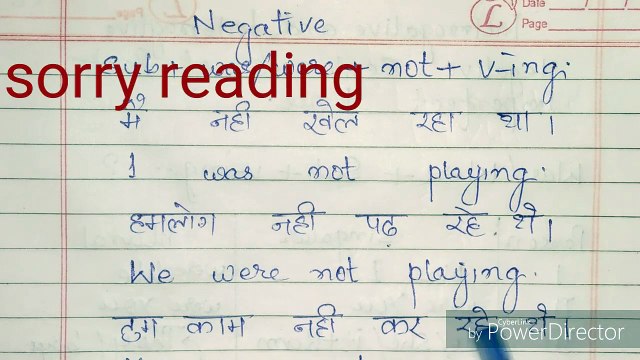 Date
Page
Negative
Sub + was/were + not + v-ing.
sorry reading
मैं नही खेल रहा था।
I was not playing.
हमलोग नही पढ़ रहे थे।
We were not playing.
तुम काम नही कर रहे थे।
CyberLink
by PowerDirector